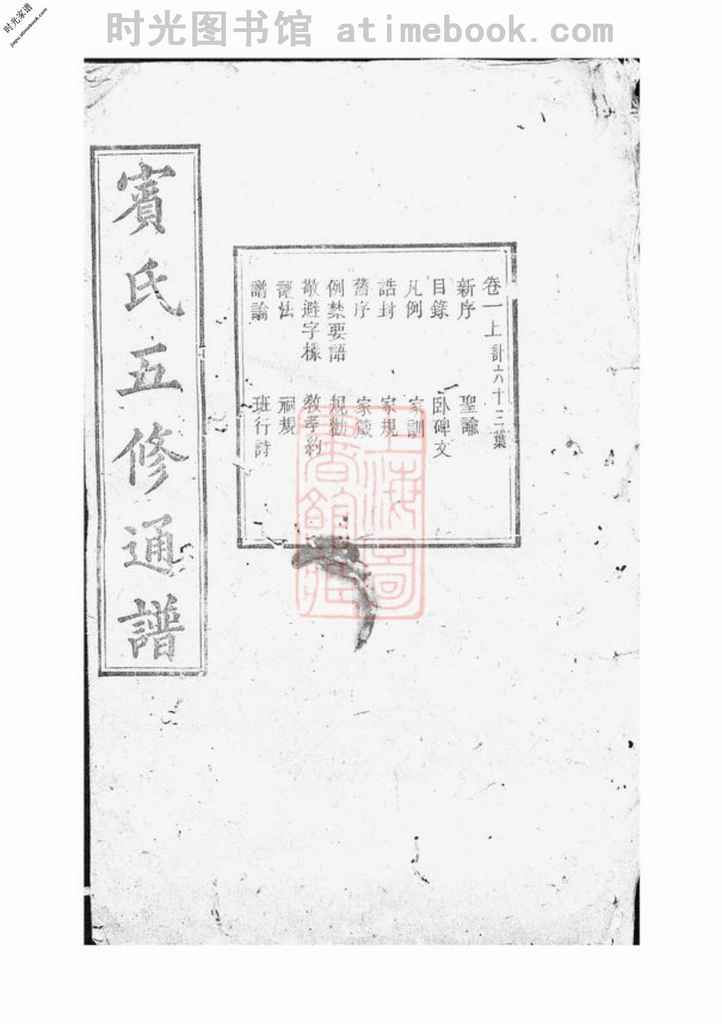 时光图书馆 atimebook.com
时光家谱
jiapu.atimebook.com
賓氏五修通譜
卷一上計六十三葉
新序 聖諭
目錄 臥碑文
凡例 家訓
誥封 家規
舊序 家箴
例禁要語 規勸
敬避字樣 教孝約
譜法 祠規
譜論 班行詩
上海圖書館藏